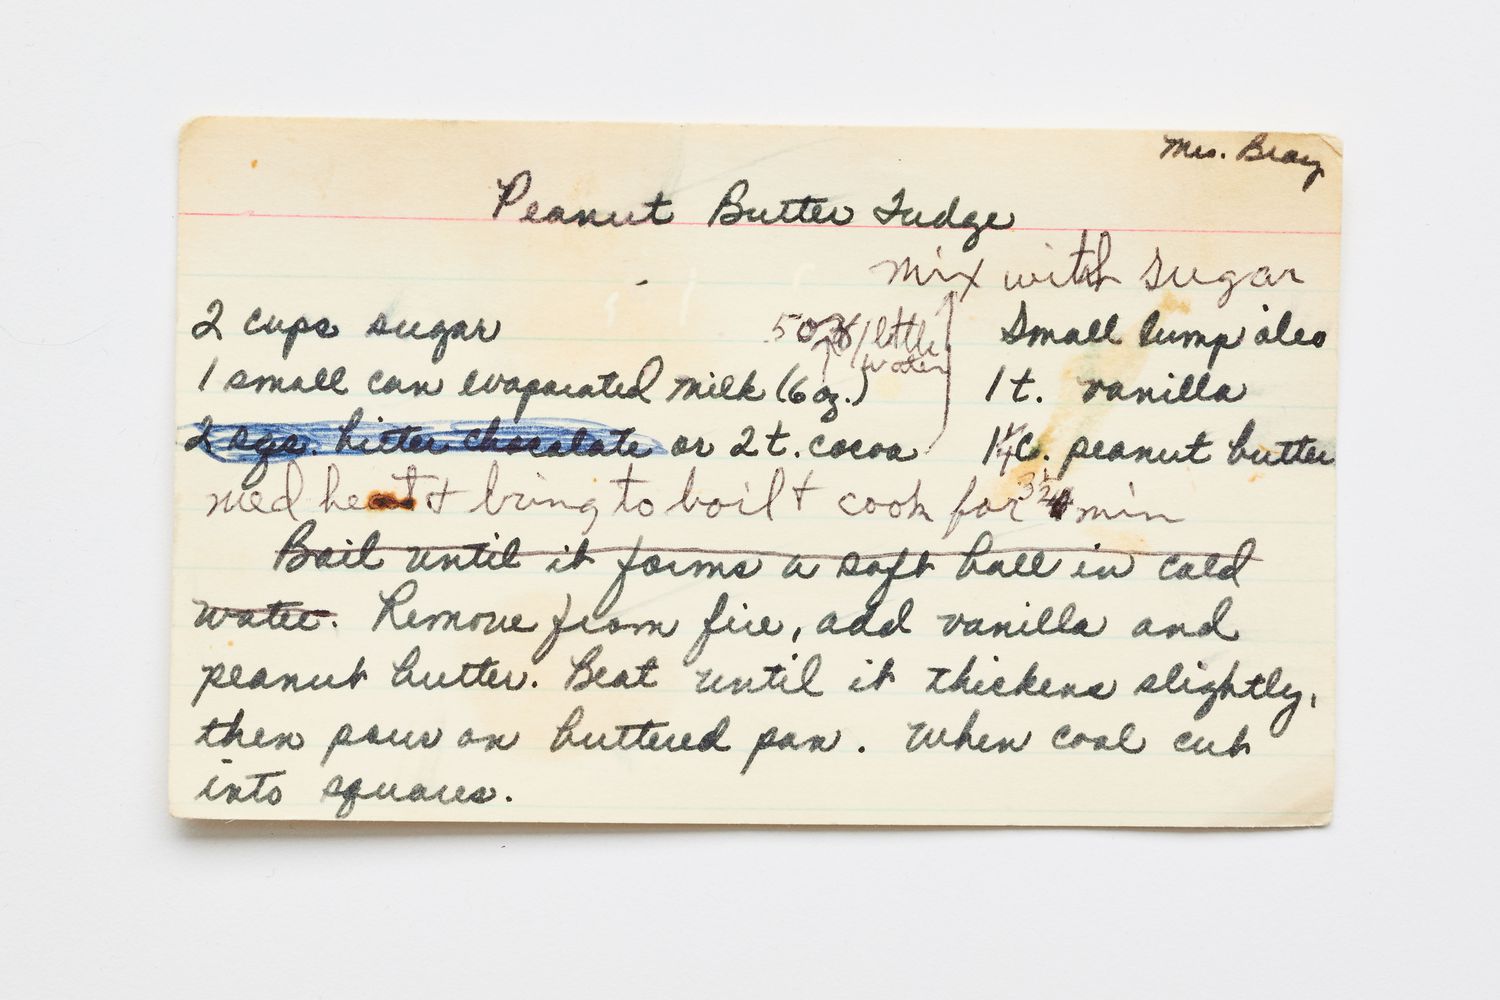 Mrs. Bray
Peanut Butter Fudge
mix with sugar
2 cups sugar
5 oz / little water
Small lump oleo
1 small can evaporated milk (6 oz.)
1 t. vanilla
2 sqs. bitter chocolate or 2 t. cocoa
1 c. peanut butter
med heat & bring to boil & cook for 3 1/2 min
Boil until it forms a soft ball in cold
water. Remove from fire, add vanilla and
peanut butter. Beat until it thickens slightly,
then pour on buttered pan. When cool cut
into squares.